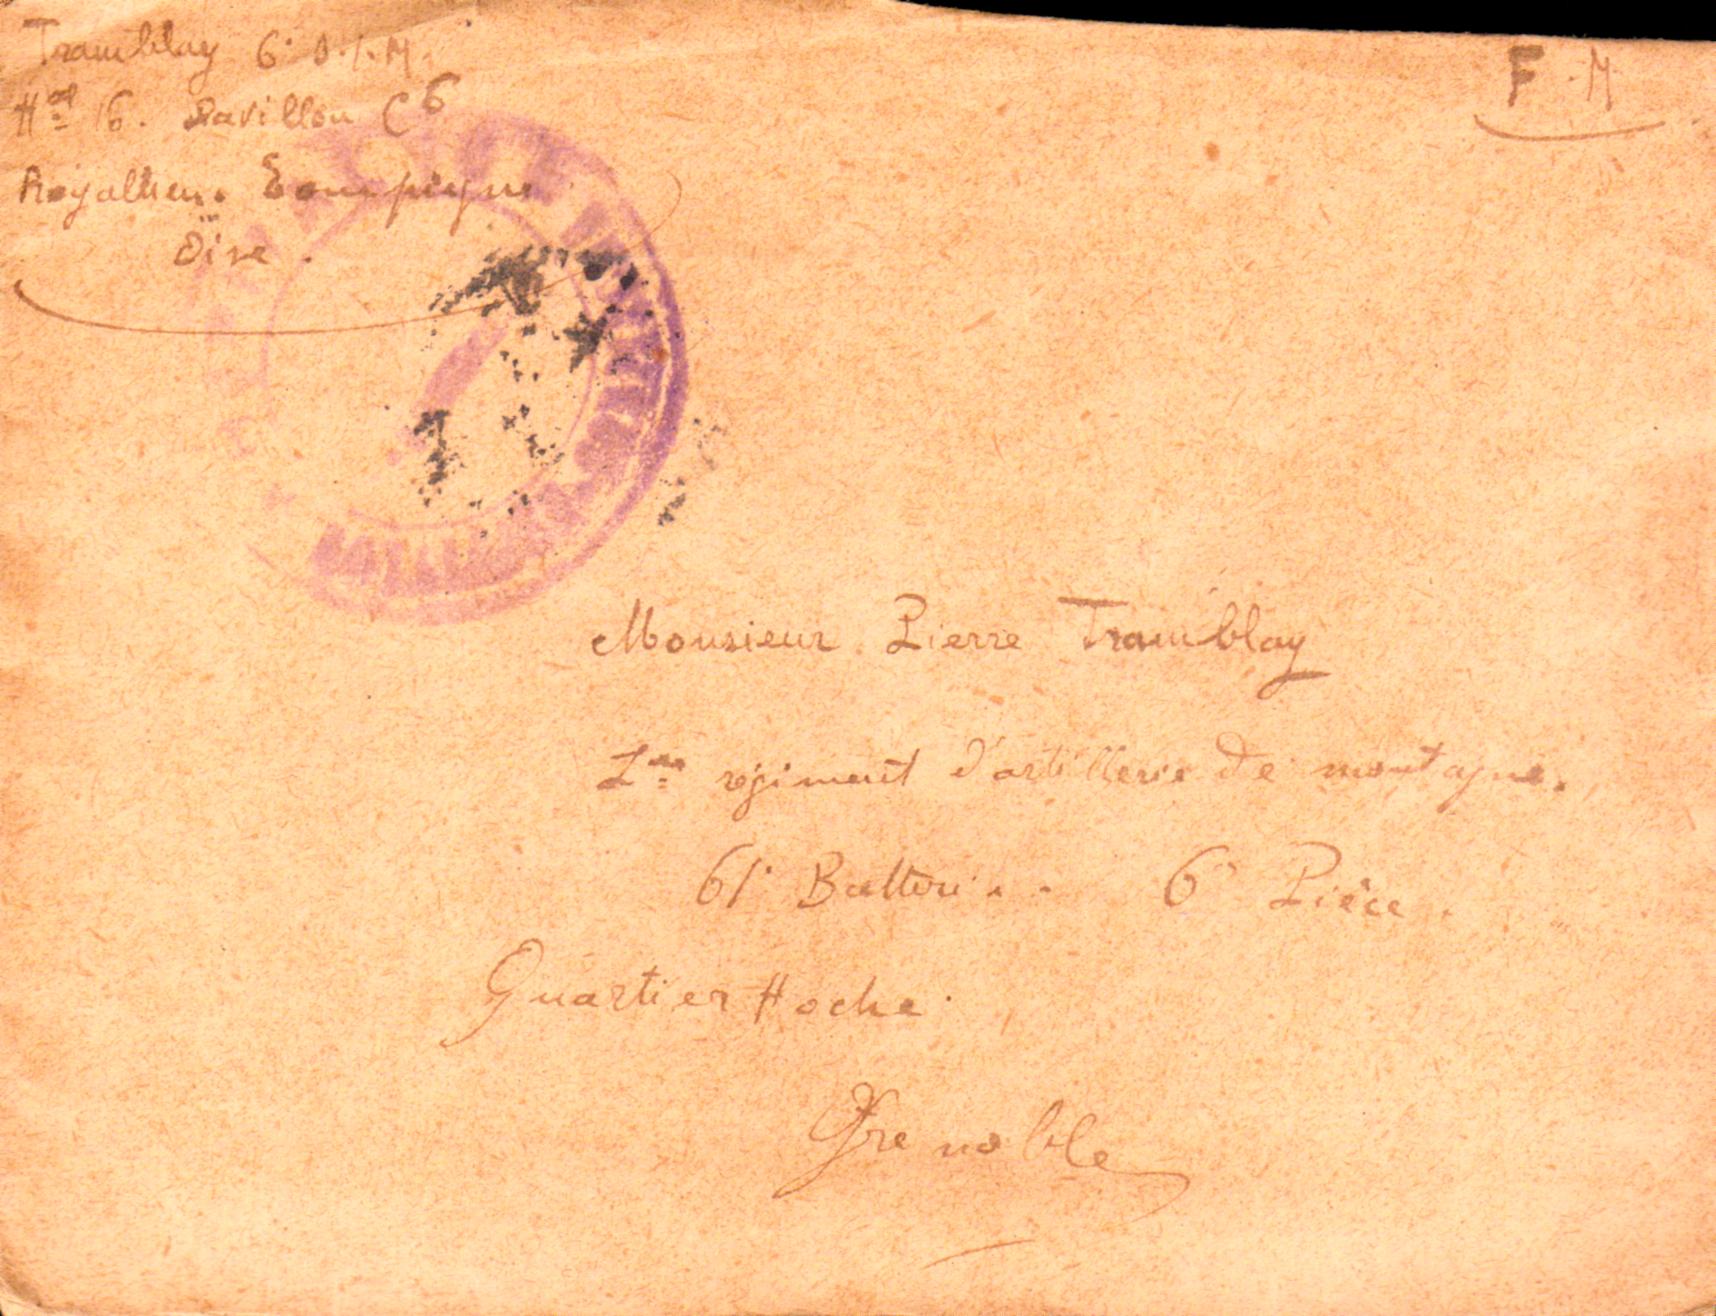 Tramblay 6e O.I.M.
Hal 16. Pavillon C6
Royallieu. Compiègne
Oise.
F. M
Monsieur Pierre Tramblay
1er régiment d'artillerie de montagne.
61e Batterie. 6e Pièce.
Quartier Hoche.
Grenoble